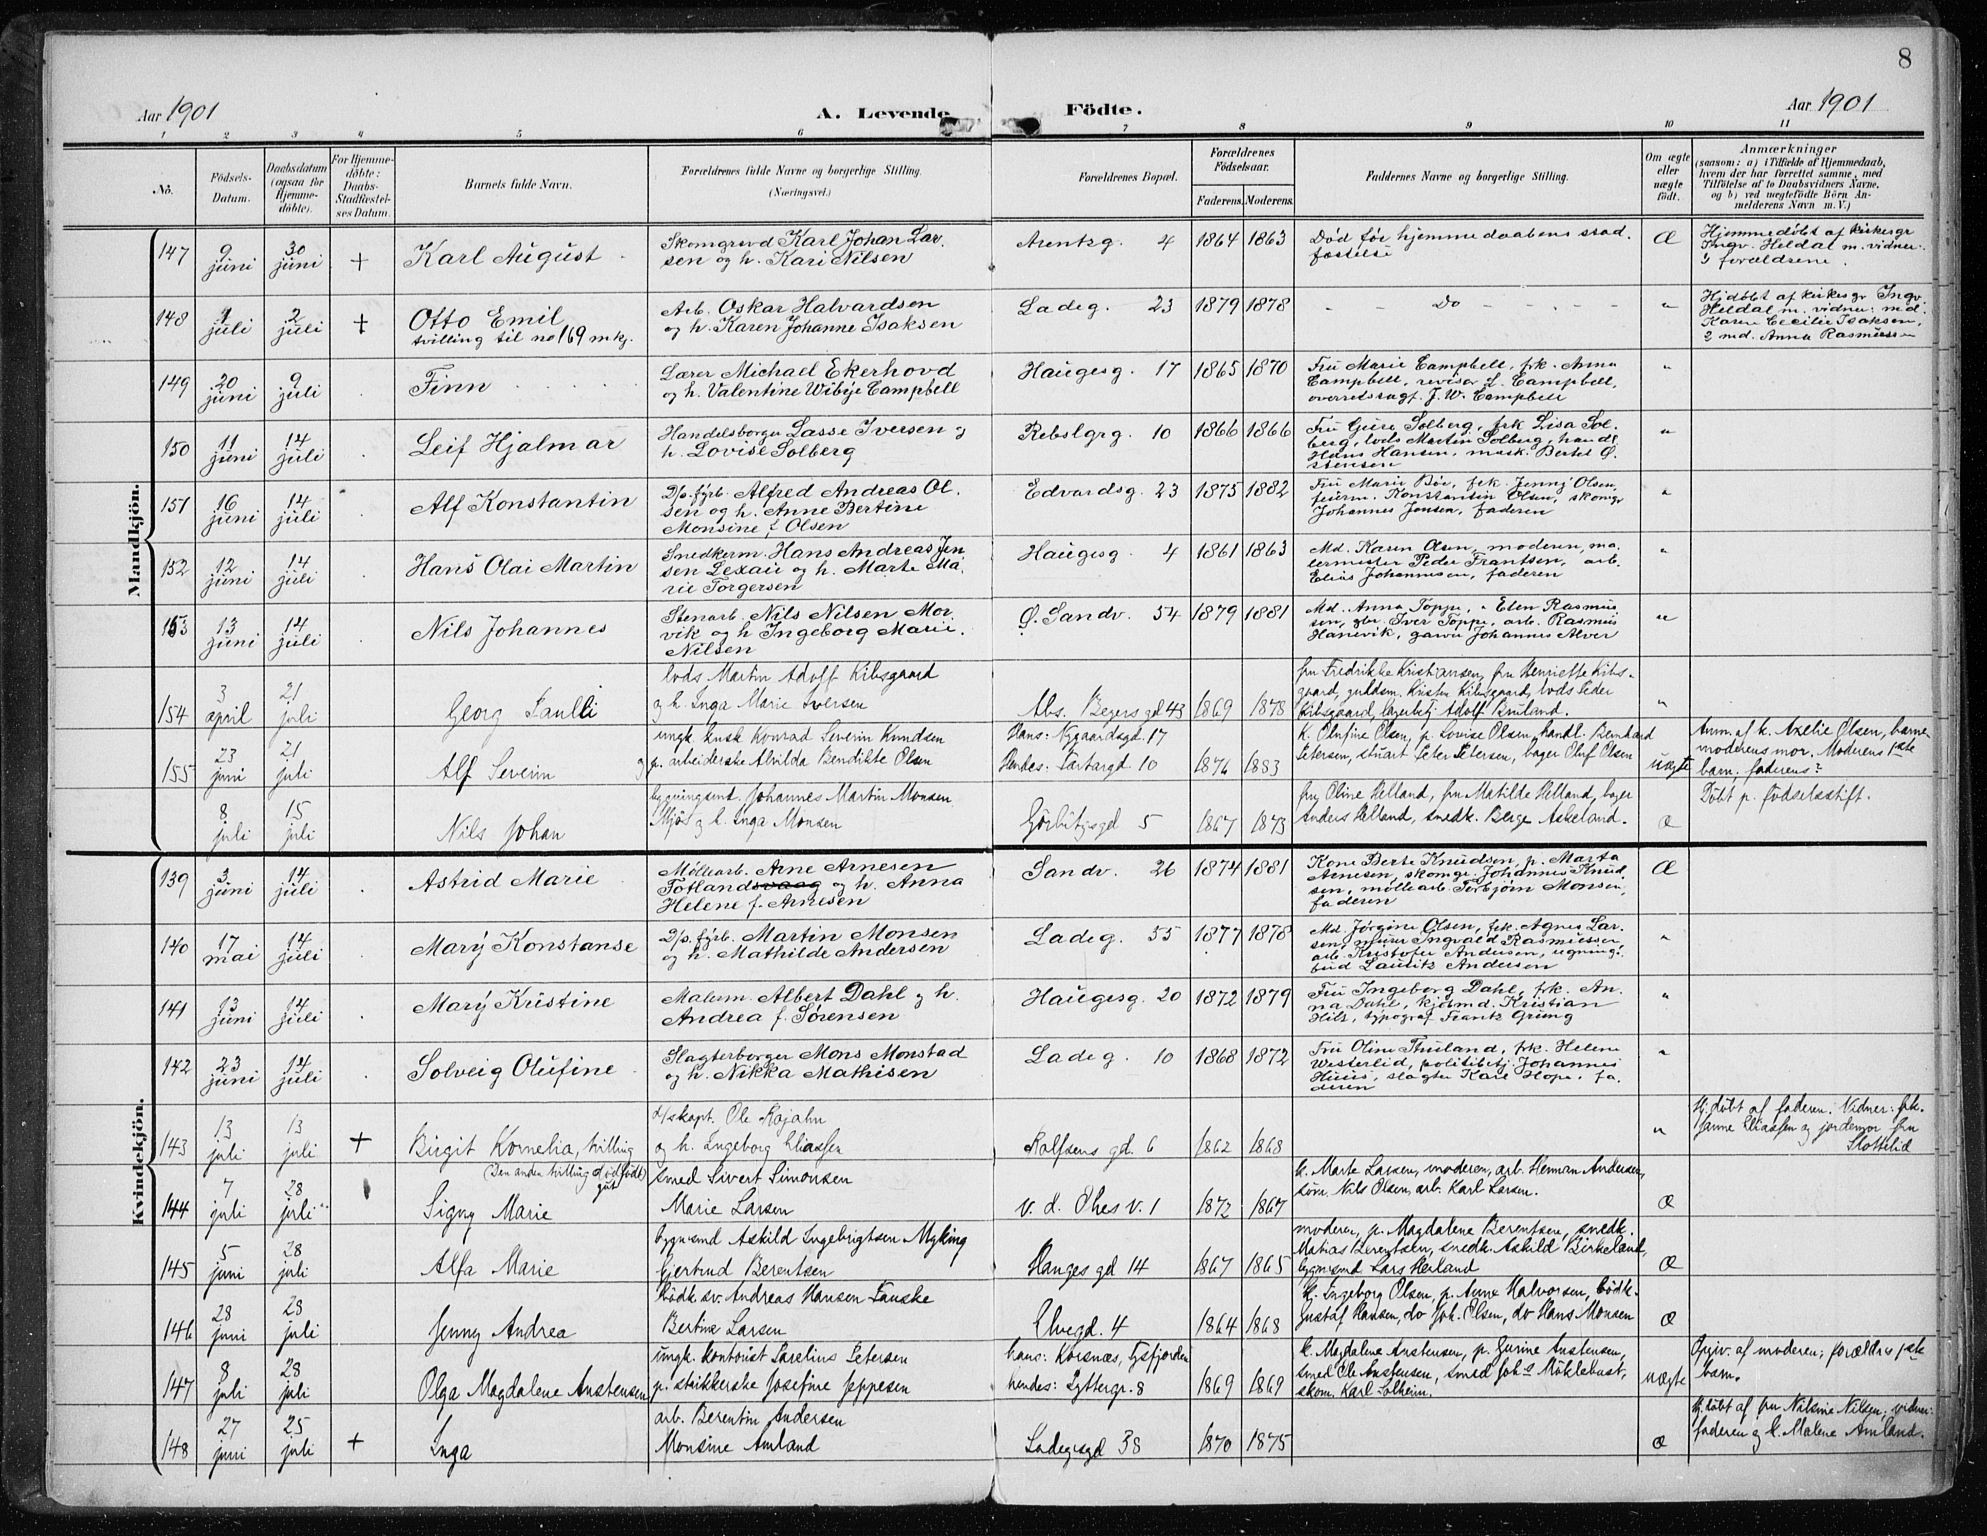 8
Aar 1901 A. Levende Födte. Aar 1901
1 2 3 4 5 6 7 8 9 10 11
No.
Födsels-Datum.
Daabsdatum (ogsaa for Hjemmedöbte).
For Hjemmedöbte: Daabs-Stadfæstelses Datum.
Barnets fulde Navn.
Forældrenes fulde Navne og borgerlige Stilling. (Næringsvei.)
Forældrenes Bopæl.
Forældrenes Födselsaar. Faderens. Moderens.
Faddernes Navne og borgerlige Stilling.
Om ægte eller uægte födt.
Anmærkninger
(saasom: a) i Tilfælde af Hjemmedaab,
hvem der har forrettet samme, med
Tilföielse af to Daabsvidners Navne,
og b) ved uægtefödte Börn Anmelderens Navn m. V.)
Mandkjön.
147 9 juni 30 juni + Karl August
Skomgrsvd Karl Johan Larsen og h. Kari Nilsen
Arentzg. 4 1864 1863 Död för hjemmedaabens stadfæstelse Æ
Hjemmedöbt af kirkesgr Ingv. Heldal m. vidner: forældrene.
148 1 juli 2 juli + Otto Emil
tvilling til no 169 mkj.
Arb. Oskar Halvardsen
og h. Karen Johanne Isaksen
Ladeg. 23 1879 1878 - - Do - - - - "
Hjdöbt af kirkesgr Ingv.
Heldal m. vidner: md.
Karen Cecilie Isaksen,
2 md. Anna Rasmussen
149 20 juni 9 juli Finn
Lærer Michael Ekerhovd
og h. Valentine Wibye Campbell
Haugesg. 17 1865 1870
Fru Marie Campbell, frk. Anna
Campbell, revisor L. Campbell,
overretssagf. J. W. Campbell "
150 11 juni 14 juli Leif Hjalmar
Handelsborger Lasse Iversen og
h. Lovise Solberg
Rebslgrg. 10 1866 1866
Fru Gjure Solberg, frk Lisa Solberg, lods Martin Solberg, handl
Hans Hansen, mask. Bertel Østensen "
151 16 juni 14 juli Alf Konstantin
D/s. fyrb. Alfred Andreas Olsen og h. Anne Bertine
Monsine f. Olsen
Edvardsg. 23 1875 1882
Fru Marie Böe, frk. Jenny Olsen,
Konstantin Olsen, skomgr
Johannes Jensen, faderen "
152 12 juni 14 juli Hans Olai Martin
Snedkerm. Hans Andreas Jensen Lexau og h. Marte Marie Torgersen
Haugesg. 4 1861 1863
Md. Karen Olsen, moderen, malermester Peder Frantsen, arb.
Elias Johannesen, faderen "
153 13 juni 14 juli Nils Johannes
Stenarb. Nils Nilsen Morvik og h. Ingeborg Marie
Nilsen
Ø. Sandv. 54 1879 1881
Md. Anna Toppe, Elen Rasmussen, gbr Iver Toppe, arb. Rasmus
Hanevik, garver Johannes Alver "
154 3 april 21 juli Georg Paulli
lods Martin Adolf Kibsgaard
og h. Inga Marie Iversen
Abs. Beyers gd 43 1869 1878
fru Fredrikke Kristiansen, fru Henriette Kibsgaard, guldsm. Krister Kibsgaard, lods Peder
Kibsgaard, Adolf Bruland. "
155 23 juni 21 juli Alf Severin
ungk. kusk Konrad Severin Knudsen
og p. arbeiderske Alvilda Bendikte Olsen
Hans: Nygaardsgd. 17
Hendes: Tartargd 10 1876 1883
k. Olufine Olsen, p. Lovise Olsen, handl. Bernhard
Petersen, stuart Peter Petersen, bager Oluf Olsen uægte
Anm. af k. Axelie Olsen, barnemoderens mor. Moderens 1ste
barn; faderens?
8 juli 15 juli Nils Johan
bygningsmd. Johannes Martin Monsen
Mjøs og h. Inga Monsen
Görbitzgd 5 1867 1873
fru Oline Helland, fru Matilde Helland, bager
Anders Helland, snedk. Berge Askeland. Æ
Döbt p. födselsstift.
Kvindekjön.
139 3 juni 14 juli Astrid Marie
Möllearb. Arne Arnesen
Totlandsvaag og h. Anna
Helene f. Arnesen
Sandv. 26 1874 1881
Kone Berte Knudsen, p. Marta
Arnesen, skomgr. Johannes Knudsen, möllearb Torbjörn Monsen,
faderen Æ
140 17 mai 14 juli Mary Konstanse
D/s. fyrb. Martin Monsen
og h. Mathilde Andersen
Ladeg. 55 1877 1878
Md. Jörgine Olsen, frk. Agnes Larsen, Ingvald Rasmussen,
arb. Kristofer Andersen, bud Lauritz Andersen "
141 13 juni 14 juli Mary Kristine
Malerm. Albert Dahl og h.
Andrea f. Sörensen
Haugesg. 20 1872 1879
Fru Ingeborg Dahl, frk. Anna Dahl, kjösmd. Kristian
Hilt, typograf Frantz Grung "
142 23 juni 14 juli Solveig Olufine
Slagterborger Mons Monstad
og h. Nikka Mathisen
Ladeg. 10 1868 1872
Fru Oline Thuland, frk Helene
Westerlid, politibtj. Johannes
Huus, slagter Karl Hope, faderen "
143 13 juli 13 juli + Birgit Kornelia, tvilling
(Den anden tvilling dødfödt gut)
d/skapt. Ole Rajahn
og h. Ingeborg Eliassen
Rolfsens gd. 6 1862 1868 "
Hj. döbt af faderen. Vidner: frk.
Janne Eliassen og jordemor fru
Slottelid
144 7 juli 28 juli Signy Marie
smed Sivert Simonsen
Marie Larsen
v. d. Ohes v. 1 1872 1867
k. Marte Larsen, moderen, arb. Herman Andersen,
söm. Nils Olsen, arb. Karl Larsen. Æ
145 5 juni 28 juli Alfa Marie
bygnsmd Askild Ingebrigtsen Myking
Gjertrud Berentsen
Hauges gd 14 1867 1865
moderen, p. Magdalene Berentsen, snedk.
Matias Berentsen, snedk. Askild Birkeland,
bygnsmd Lars Heiland Æ
146 28 juni 28 juli Jenny Andrea
Bödk. sv. Andreas Hansen Fauske
Bertine Larsen
Elvegd. 4 1864 1868
k. Ingeborg Olsen, p. Anne Halvorsen, bödk.
Gustaf Hansen, do Joh. Olsen, do Hans Monsen Æ
147 8 juli 28 juli Olga Magdalene Anstensen
ungk. kontorist Karelius Petersen
p. strikkerske Josefine Jeppesen
hans: Korsnæs, Tysfjorden
hendes: Lyttergr. 8 1869 1869
k. Magdalene Anstensen, p. Gurine Anstensen,
smed Ole Anstensen, smed Johs Myklebust,
skom. Karl Solheim. uægte
Opgiv. af moderen; forældres 1ste
barn.
148 27 juni 25 juli + Inga
arb. Berentin Andersen
Monsine Amland
Ladegsgd 38 1870 1875 Æ
Hj. döbt af fru Nilsine Nilsen; vidner:
faderen og k. Malene Amland.